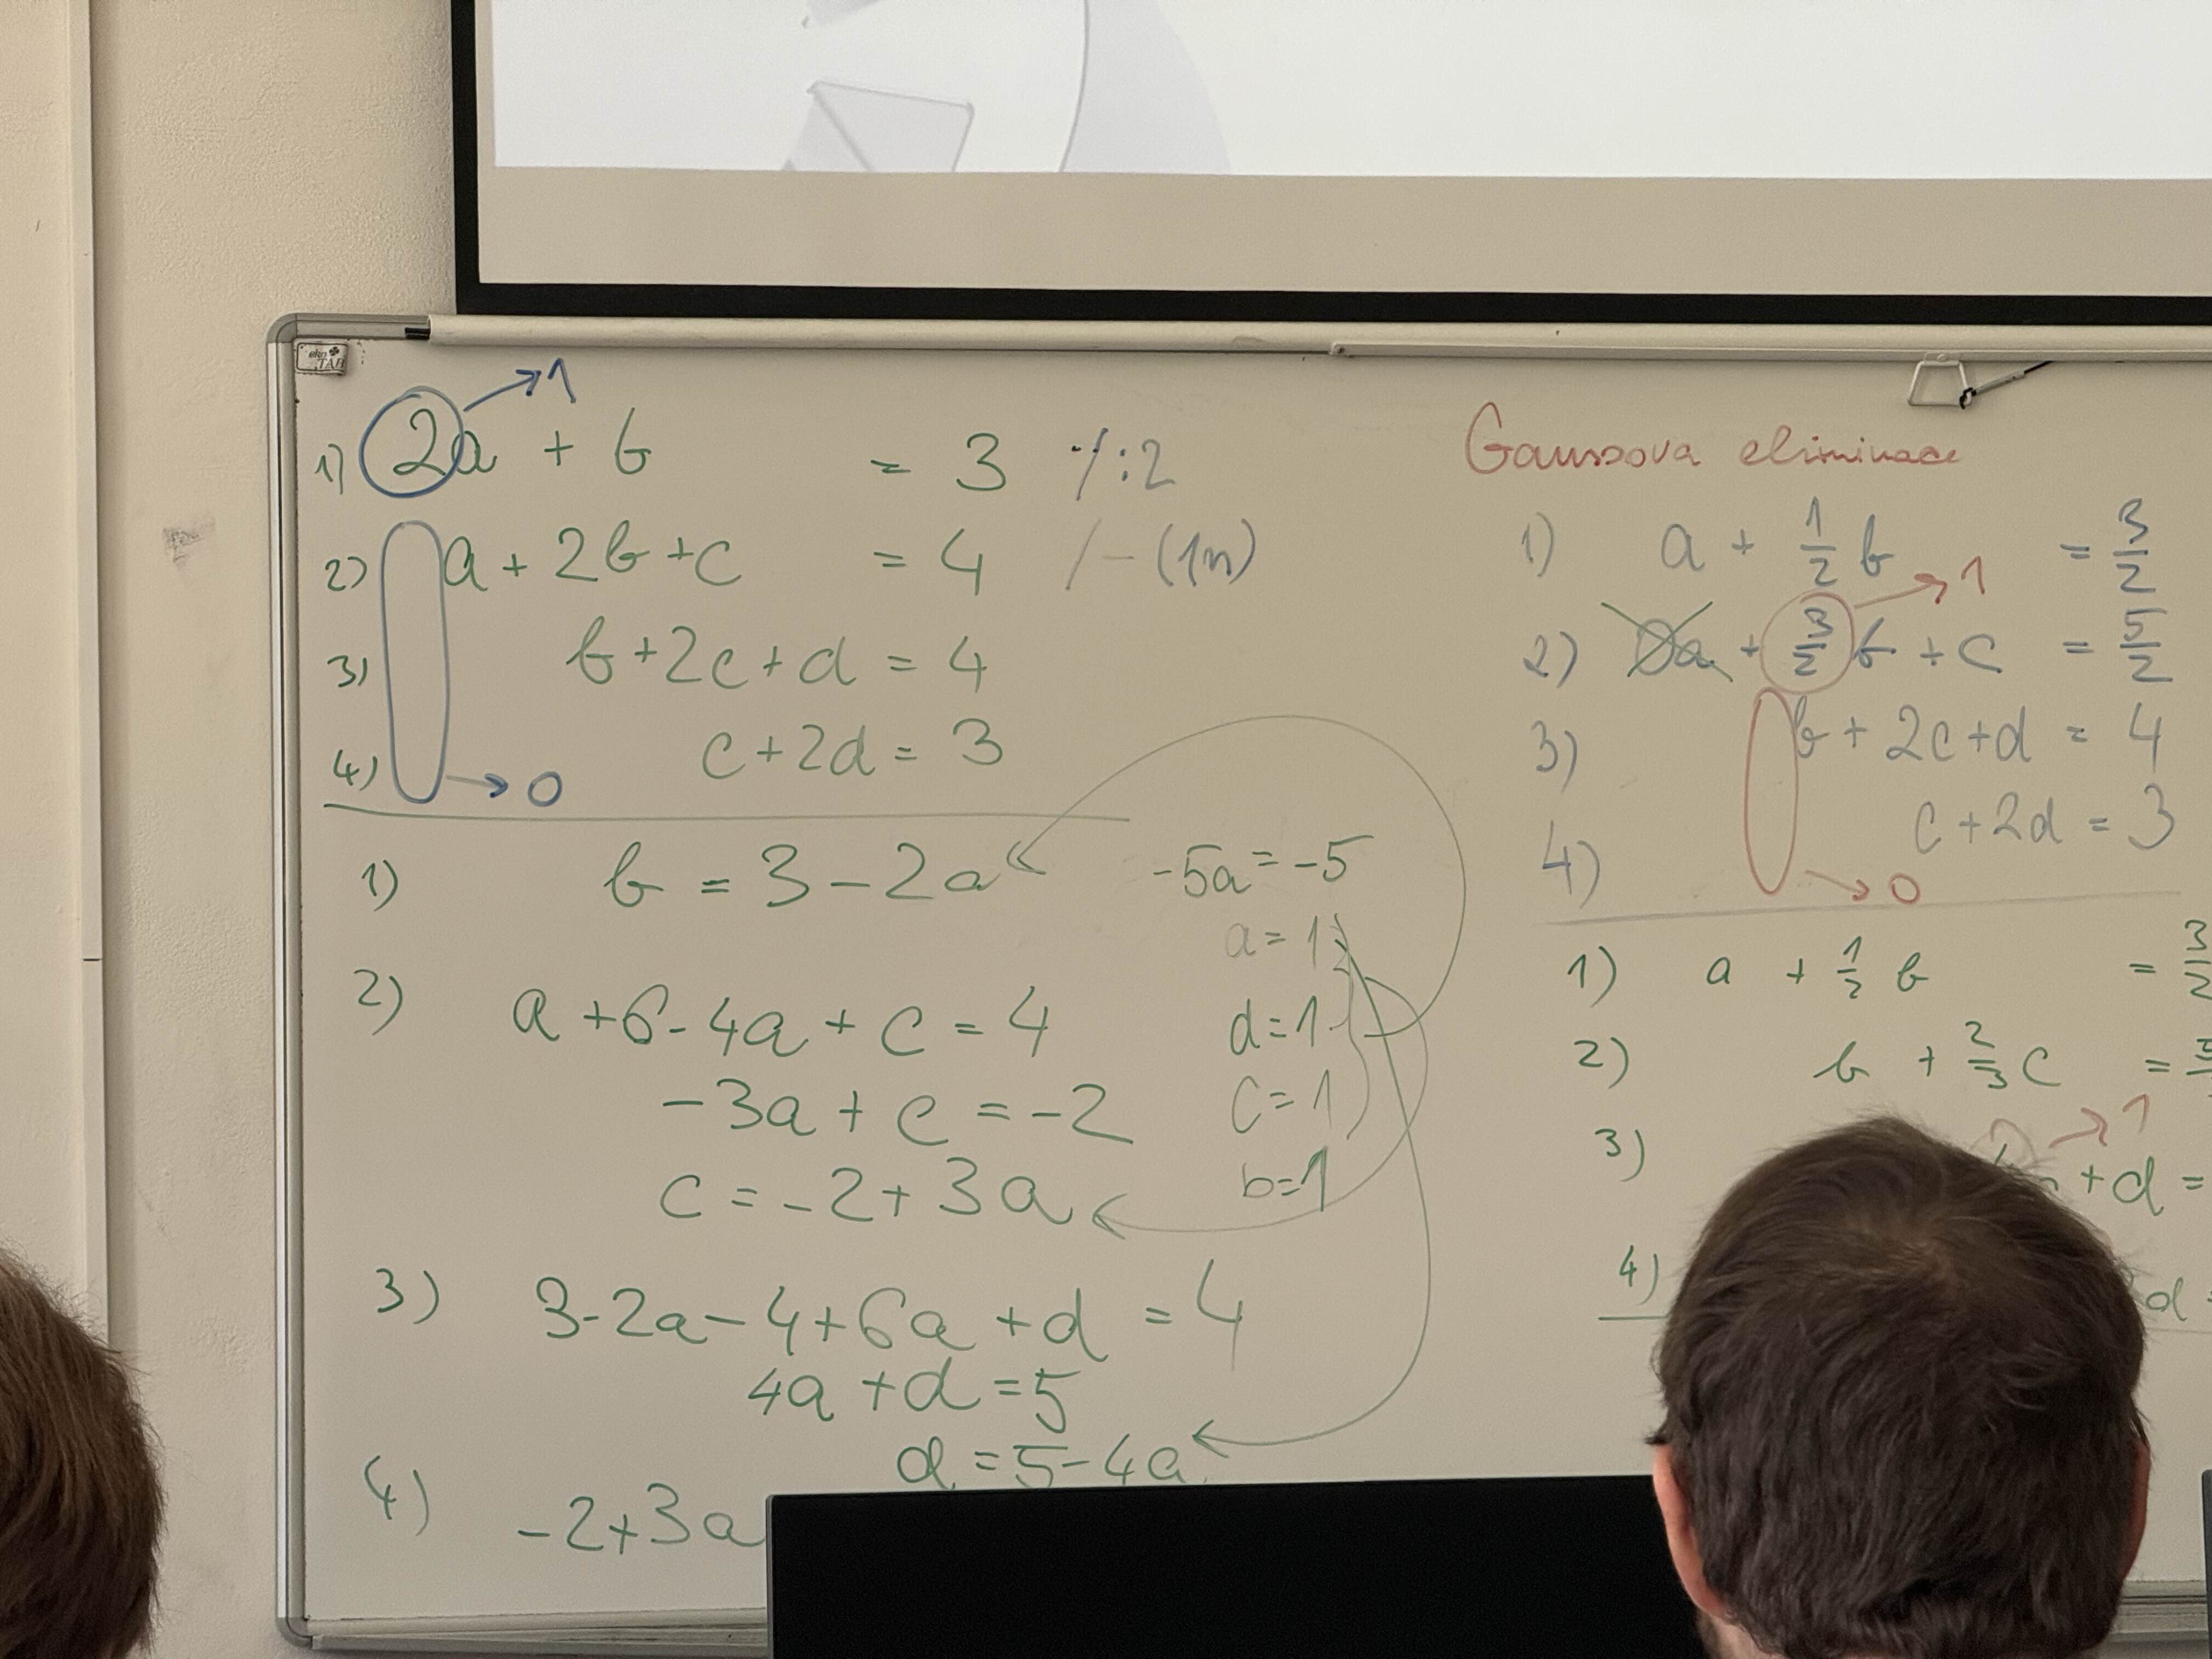 ekoTAB
→1
1) 2a + b = 3 /:2
2) a + 2b + c = 4 / - (1n)
3) b + 2c + d = 4
4) c + 2d = 3
→ 0
1) b = 3 - 2a
2) a + 6 - 4a + c = 4
-3a + c = -2
c = -2 + 3a
3) 3 - 2a - 4 + 6a + d = 4
4a + d = 5
d = 5 - 4a
4) -2 + 3a
-5a = -5
a = 1
d = 1
c = 1
b = 1
Gaussova eliminace
1) a + 1/2 b = 3/2
→ 1
2) 0a + 3/2 b + c = 5/2
3) b + 2c + d = 4
4) c + 2d = 3
→ 0
1) a + 1/2 b = 3/2
2) b + 2/3 c =
→ 1
3) + d =
4) d